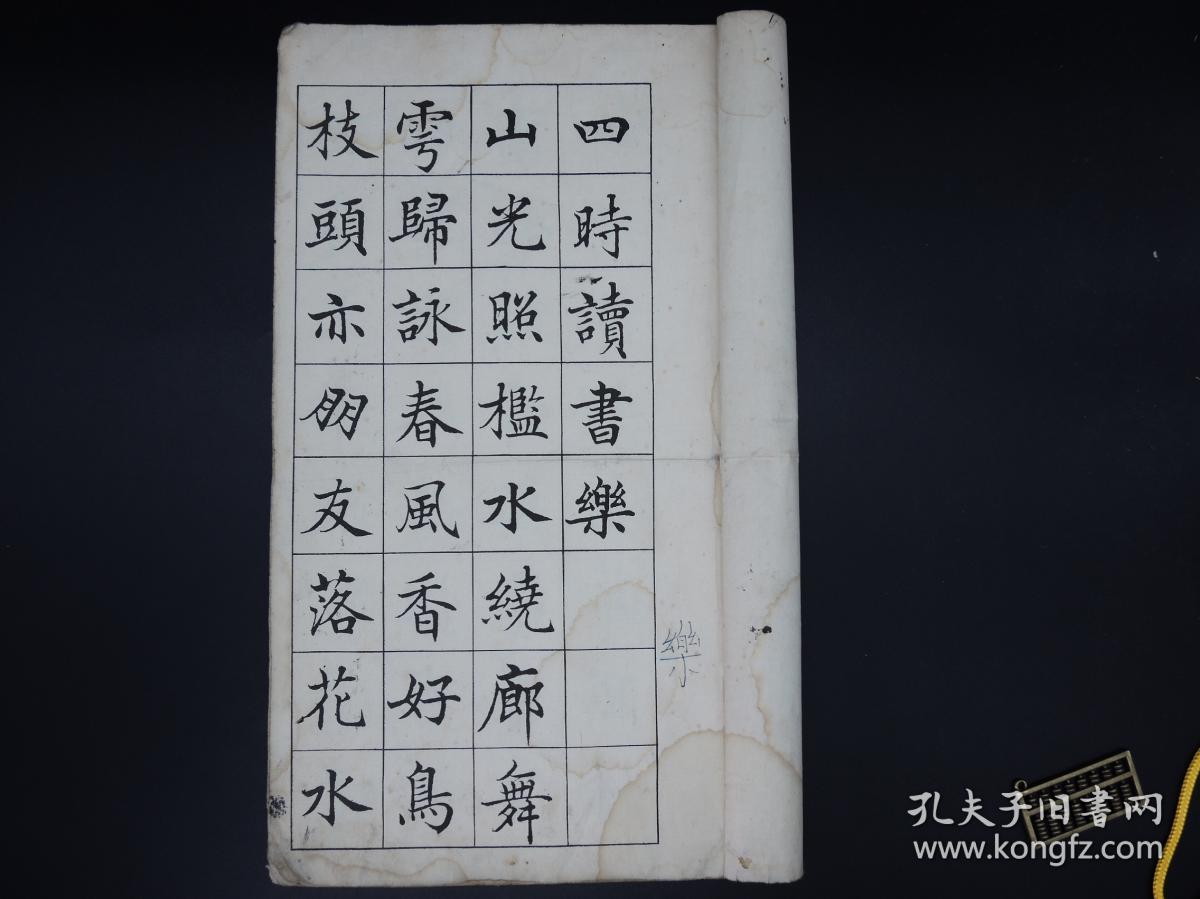 四時讀書樂
山光照檻水繞廊舞
雩歸詠春風香好鳥
枝頭亦朋友落花水
樂
孔夫子旧书网
www.kongfz.com